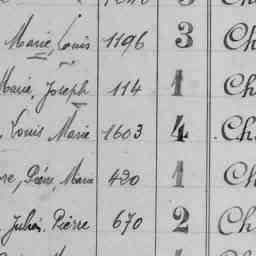 Marie, Louis 1196 3 Ch
Marie, Joseph 114 1 Ch
, Louis Marie 1603 4 Ch
re, Pierre, Marie 420 1 Ch
Julien, Pierre 670 2 Ch